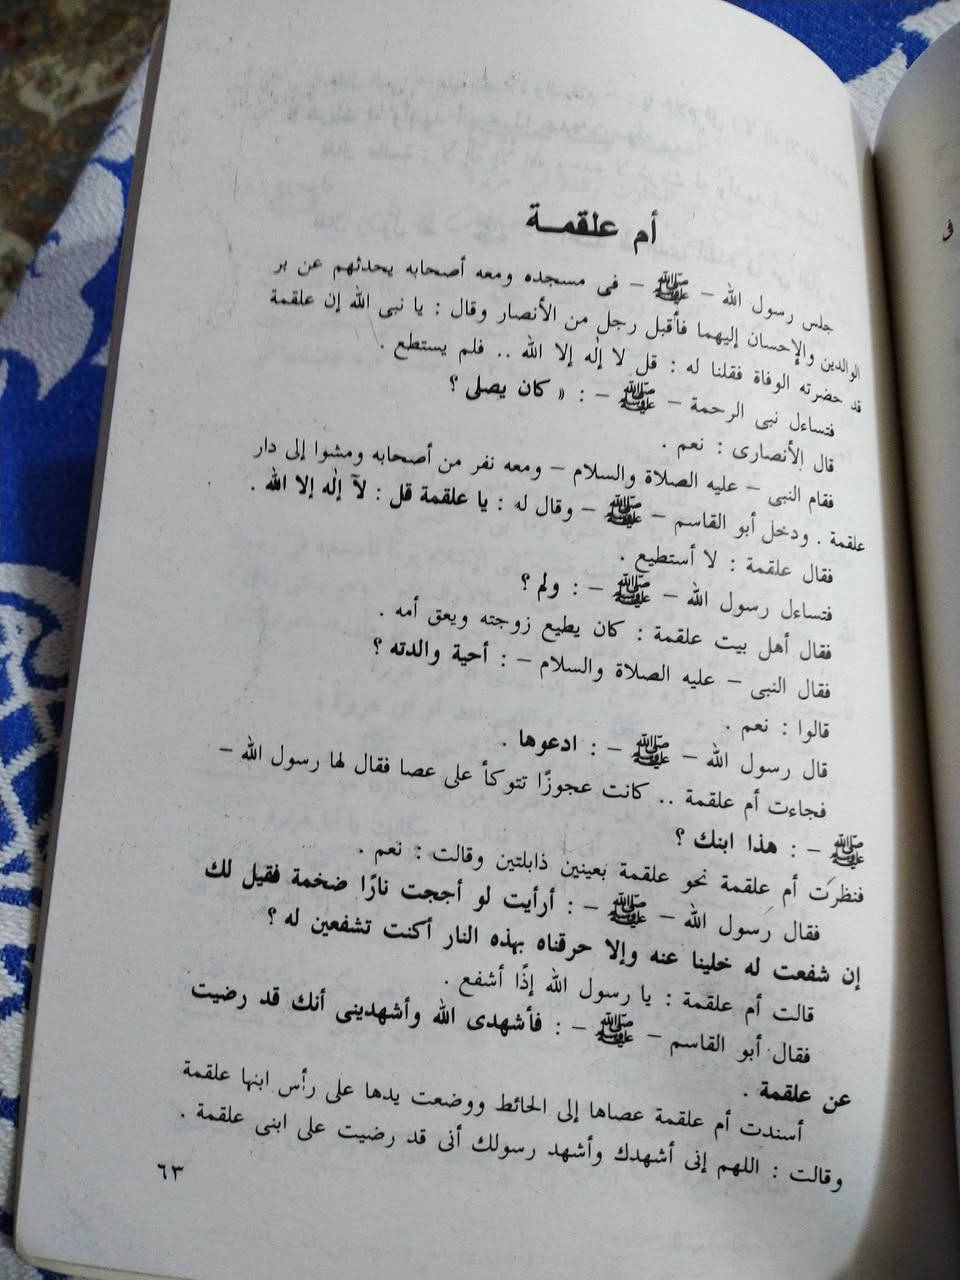 أم علقمـــة
جلس رسول الله – ﷺ – فى مسجده ومعه أصحابه يحدثهم عن بر
الوالدين والإحسان إليهما فأقبل رجل من الأنصار وقال : يا نبى الله إن علقمة
قد حضرته الوفاة فقلنا له : قل لا إلٰه إلا الله .. فلم يستطع .
فتساءل نبى الرحمة – ﷺ – : « كان يصلى ؟
قال الأنصارى : نعم .
فقام النبى – عليه الصلاة والسلام – ومعه نفر من أصحابه ومشوا إلى دار
علقمة . ودخل أبو القاسم – ﷺ – وقال له : يا علقمة قل : لآ إلٰه إلا الله .
فقال علقمة : لا أستطيع .
فتساءل رسول الله – ﷺ – : ولم ؟
فقال أهل بيت علقمة : كان يطيع زوجته ويعق أمه .
فقال النبى – عليه الصلاة والسلام – : أحية والدته ؟
قالوا : نعم .
قال رسول الله – ﷺ – : ادعوها .
فجاءت أم علقمة .. كانت عجوزًا تتوكأ على عصا فقال لها رسول الله –
ﷺ – : هذا ابنك ؟
فنظرت أم علقمة نحو علقمة بعينين ذابلتين وقالت : نعم .
فقال رسول الله – ﷺ – : أرأيت لو أججت نارًا ضخمة فقيل لك
إن شفعت له خلينا عنه وإلا حرقناه بهذه النار أكنت تشفعين له ؟
قالت أم علقمة : يا رسول الله إذًا أشفع .
فقال أبو القاسم – ﷺ – : فأشهدى الله وأشهدينى أنك قد رضيت
عن علقمة .
أسندت أم علقمة عصاها إلى الحائط ووضعت يدها على رأس ابنها علقمة
وقالت : اللهم إنى أشهدك وأشهد رسولك أنى قد رضيت على ابنى علقمة .
٦٣